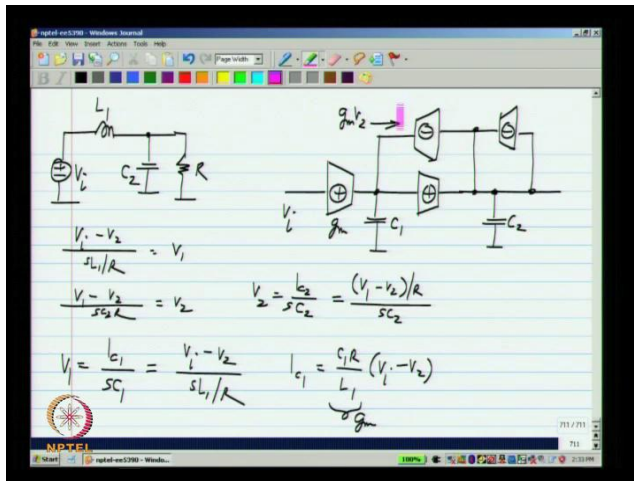 nptel-ee5390 - Windows Journal
File Edit View Insert Actions Tools Help
Page Width
B I
L₁
V_i
C₂
R
g_m v₂
V_i
g_m
C₁
C₂
(V_i - V₂)/(sL₁/R) = V₁
(V₁ - V₂)/(sC₂R) = V₂
V₂ = I_{C₂}/(sC₂) = ((V₁ - V₂)/R)/(sC₂)
V₁ = I_{C₁}/(sC₁) = (V_i - V₂)/(sL₁/R)
I_{C₁} = (C₁R/L₁)(V_i - V₂)
g_m
NPTEL
711 / 711
711
Start
nptel-ee5390 - Windo...
100%
2:33 PM